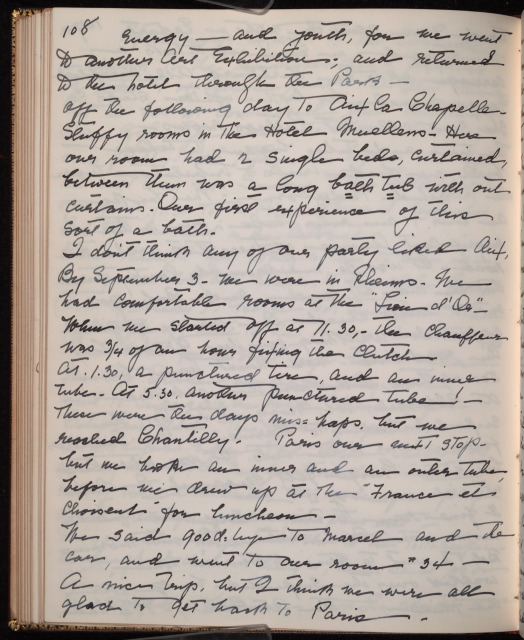 108
Energy — and youth, for we went
to another Art Exhibition, and returned
to the hotel through the Park —
off the following day to Aix La Chapelle.
Stuffy rooms in the Hotel Nuellens. Here
our room had 2 single beds, curtained,
between them was a long bath tub with out
curtains. Our first experience of this
sort of a bath.
I don't think any of our party liked Aix,
By September 3 - we were in Rheims. We
had comfortable rooms at the "Lion d'Or"
When we started off at 11.30, - the Chauffeur
was 3/4 of an hour fixing the Clutch
At. 1.30, a punctured tire, and an inner
tube. At 5.30. another punctured tube! —
These were the days mis=haps, but we
reached Chantilly. Paris our next stop-
but we broke an inner and an outer tube,
before we drew up at the "France et
Choiseul for luncheon —
We said good-bye to Marcel and the
car, and went to our room "34 —
A nice trip, but I think we were all
glad to get back to Paris.